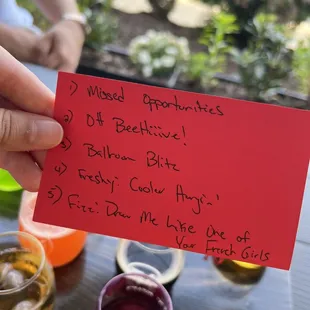 1) Missed Opportunities
2) Ott Beethiiive!
3) Ballroom Blitz
4) Freshy: Cooler Hangin'
5) Fizz: Draw Me Like One of
You French Girls